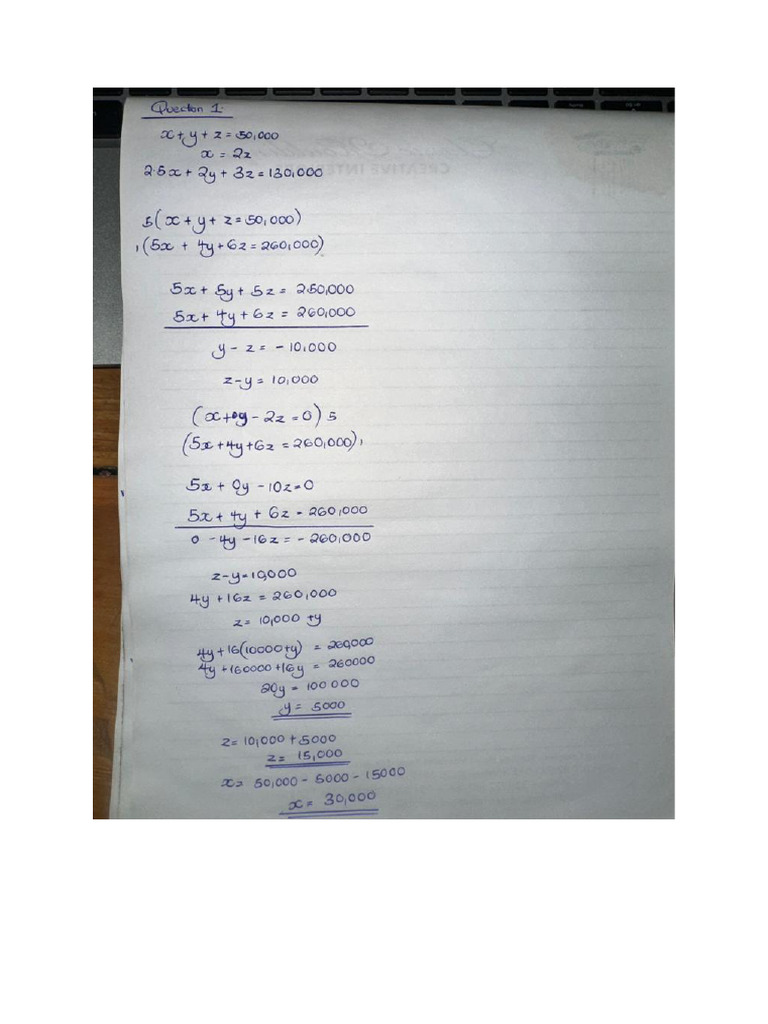 Question 1.
x + y + z = 50,000
x = 2z
2.5x + 2y + 3z = 130,000
5(x + y + z = 50,000)
1(5x + 4y + 6z = 260,000)
5x + 5y + 5z = 250,000
5x + 4y + 6z = 260,000
y - z = - 10,000
z - y = 10,000
(x + 0y - 2z = 0) 5
(5x + 4y + 6z = 260,000) 1
5x + 0y - 10z = 0
5x + 4y + 6z = 260,000
0 - 4y - 16z = - 260,000
z - y = 10,000
4y + 16z = 260,000
z = 10,000 + y
4y + 16(10000 + y) = 260,000
4y + 160000 + 16y = 260000
20y = 100 000
y = 5000
z = 10,000 + 5000
z = 15,000
x = 50,000 - 5000 - 15000
x = 30,000